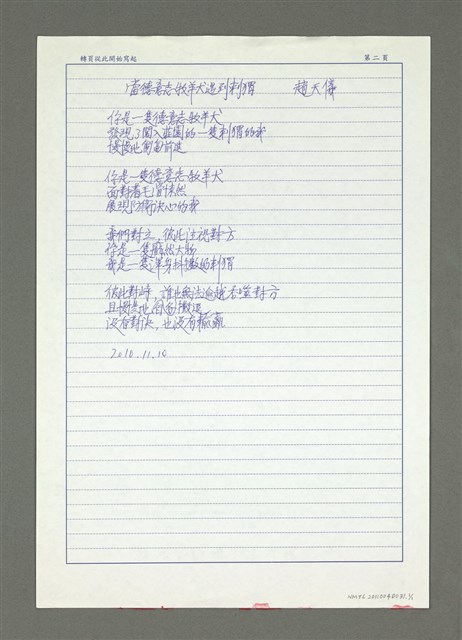 轉頁從此開始寫起
第二頁
當德意志牧羊犬遇到刺猬 趙天儀
你是一隻德意志牧羊犬
發現了闖入莊園的一隻刺猬的我
慢慢地匍匐前進
你是一隻德意志牧羊犬
面對著毛骨悚然
展現防衛決心的我
我們對立,彼此注視對方
你是一隻龐然大物
我是一隻渾身抖擻的刺猬
彼此對峙,誰也無法逾越吞噬對方
且慢慢地各自撤退
沒有對決,也沒有輸贏
2010.11.10